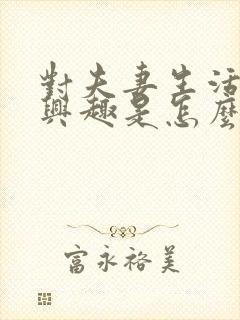 對夫妻生活
興趣是怎麼
富永裕美